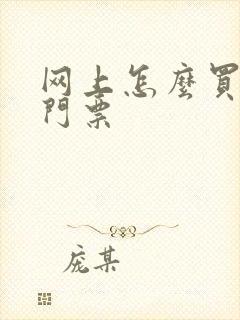 网上怎麽買
門票
庞某